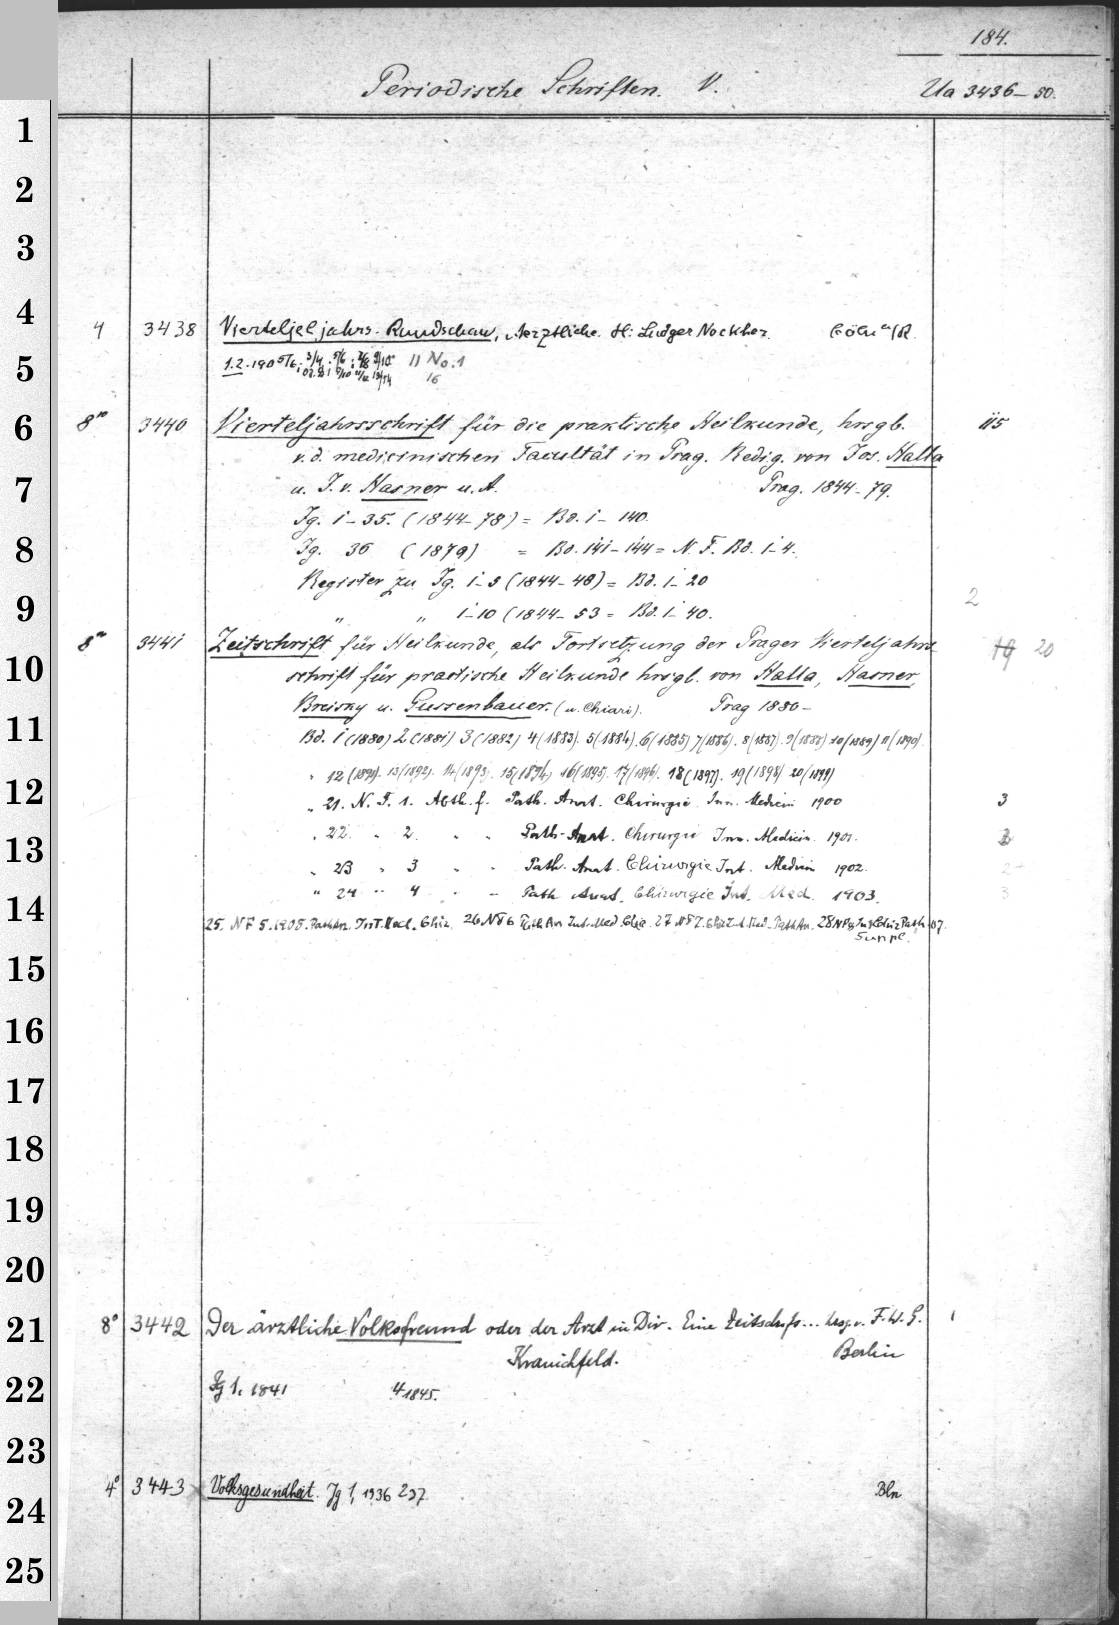 184.
Periodische Schriften. V. Ua 3436-50.
1
2
3
4
4 3438 Vierteljahrs-Rundschau, Aerztliche. H: Ludger Nockher Cöln a/R.
5
1.2.190 II No. 1
16
6
8° 3440 Vierteljahrsschrift für die praktische Heilkunde, hrsgb. 115
v. d. medicinischen Facultät in Prag. Redig. von Jos. Halla
7
u. J. v. Hasner u. A. Prag. 1844-79.
Jg. 1-35. (1844-78) = Bd. 1-140.
8
Jg. 36 (1879) = Bd. 141-144 = N. F. Bd. 1-4.
Register zu Jg. 1-5 (1844-48) = Bd. 1-20
9
" " 1-10 (1844-53 = Bd. 1-40. 2
8° 3441 Zeitschrift für Heilkunde, als Fortsetzung der Prager Vierteljahrs- 19 20
10
schrift für practische Heilkunde hrsgb. von Halla, Hasner,
11
Breisky u. Gussenbauer. (u. Chiari). Prag 1880-
Bd. 1 (1880) 2 (1881) 3 (1882) 4 (1883). 5 (1884). 6 (1885) 7 (1886). 8 (1887). 9 (1888) 10 (1889) 11 (1890).
" 12 (1891). 13 (1892). 14 (1893). 15 (1894) 16 (1895). 17 (1896). 18 (1897). 19 (1898) 20 (1899)
12
" 21. N. F. 1. Abth. f. Path. Anat. Chirurgie Inn. Medicin 1900 3
13
" 22. " 2. " " Path. Anat. Chirurgie Inn. Medicin. 1901. 3
" 23 " 3 " " Path. Anat. Chirurgie Int. Medicin 1902. 2
14
" 24 " 4 " " Path. Anat. Chirurgie Int. Med. 1903. 3
25. NF 5. 1905. Path An. Int. Med. Chir. 26 NF 6 Path An Int. Med. Chir. 27 NF 7. Chir Int. Med. Path An. 28 NF 8 Int Chir Path 07.
Suppl.
15
16
17
18
19
20
21
8° 3442 Der ärztliche Volksfreund oder der Arzt in Dir. Eine Zeitschr... hrsg. v. F. W. G. 1
Kranichfeld. Berlin
22
Jg 1. 1841 4 1845.
23
4° 3443 Volksgesundheit. Jg 1, 1936 2 37 Bln
24
25